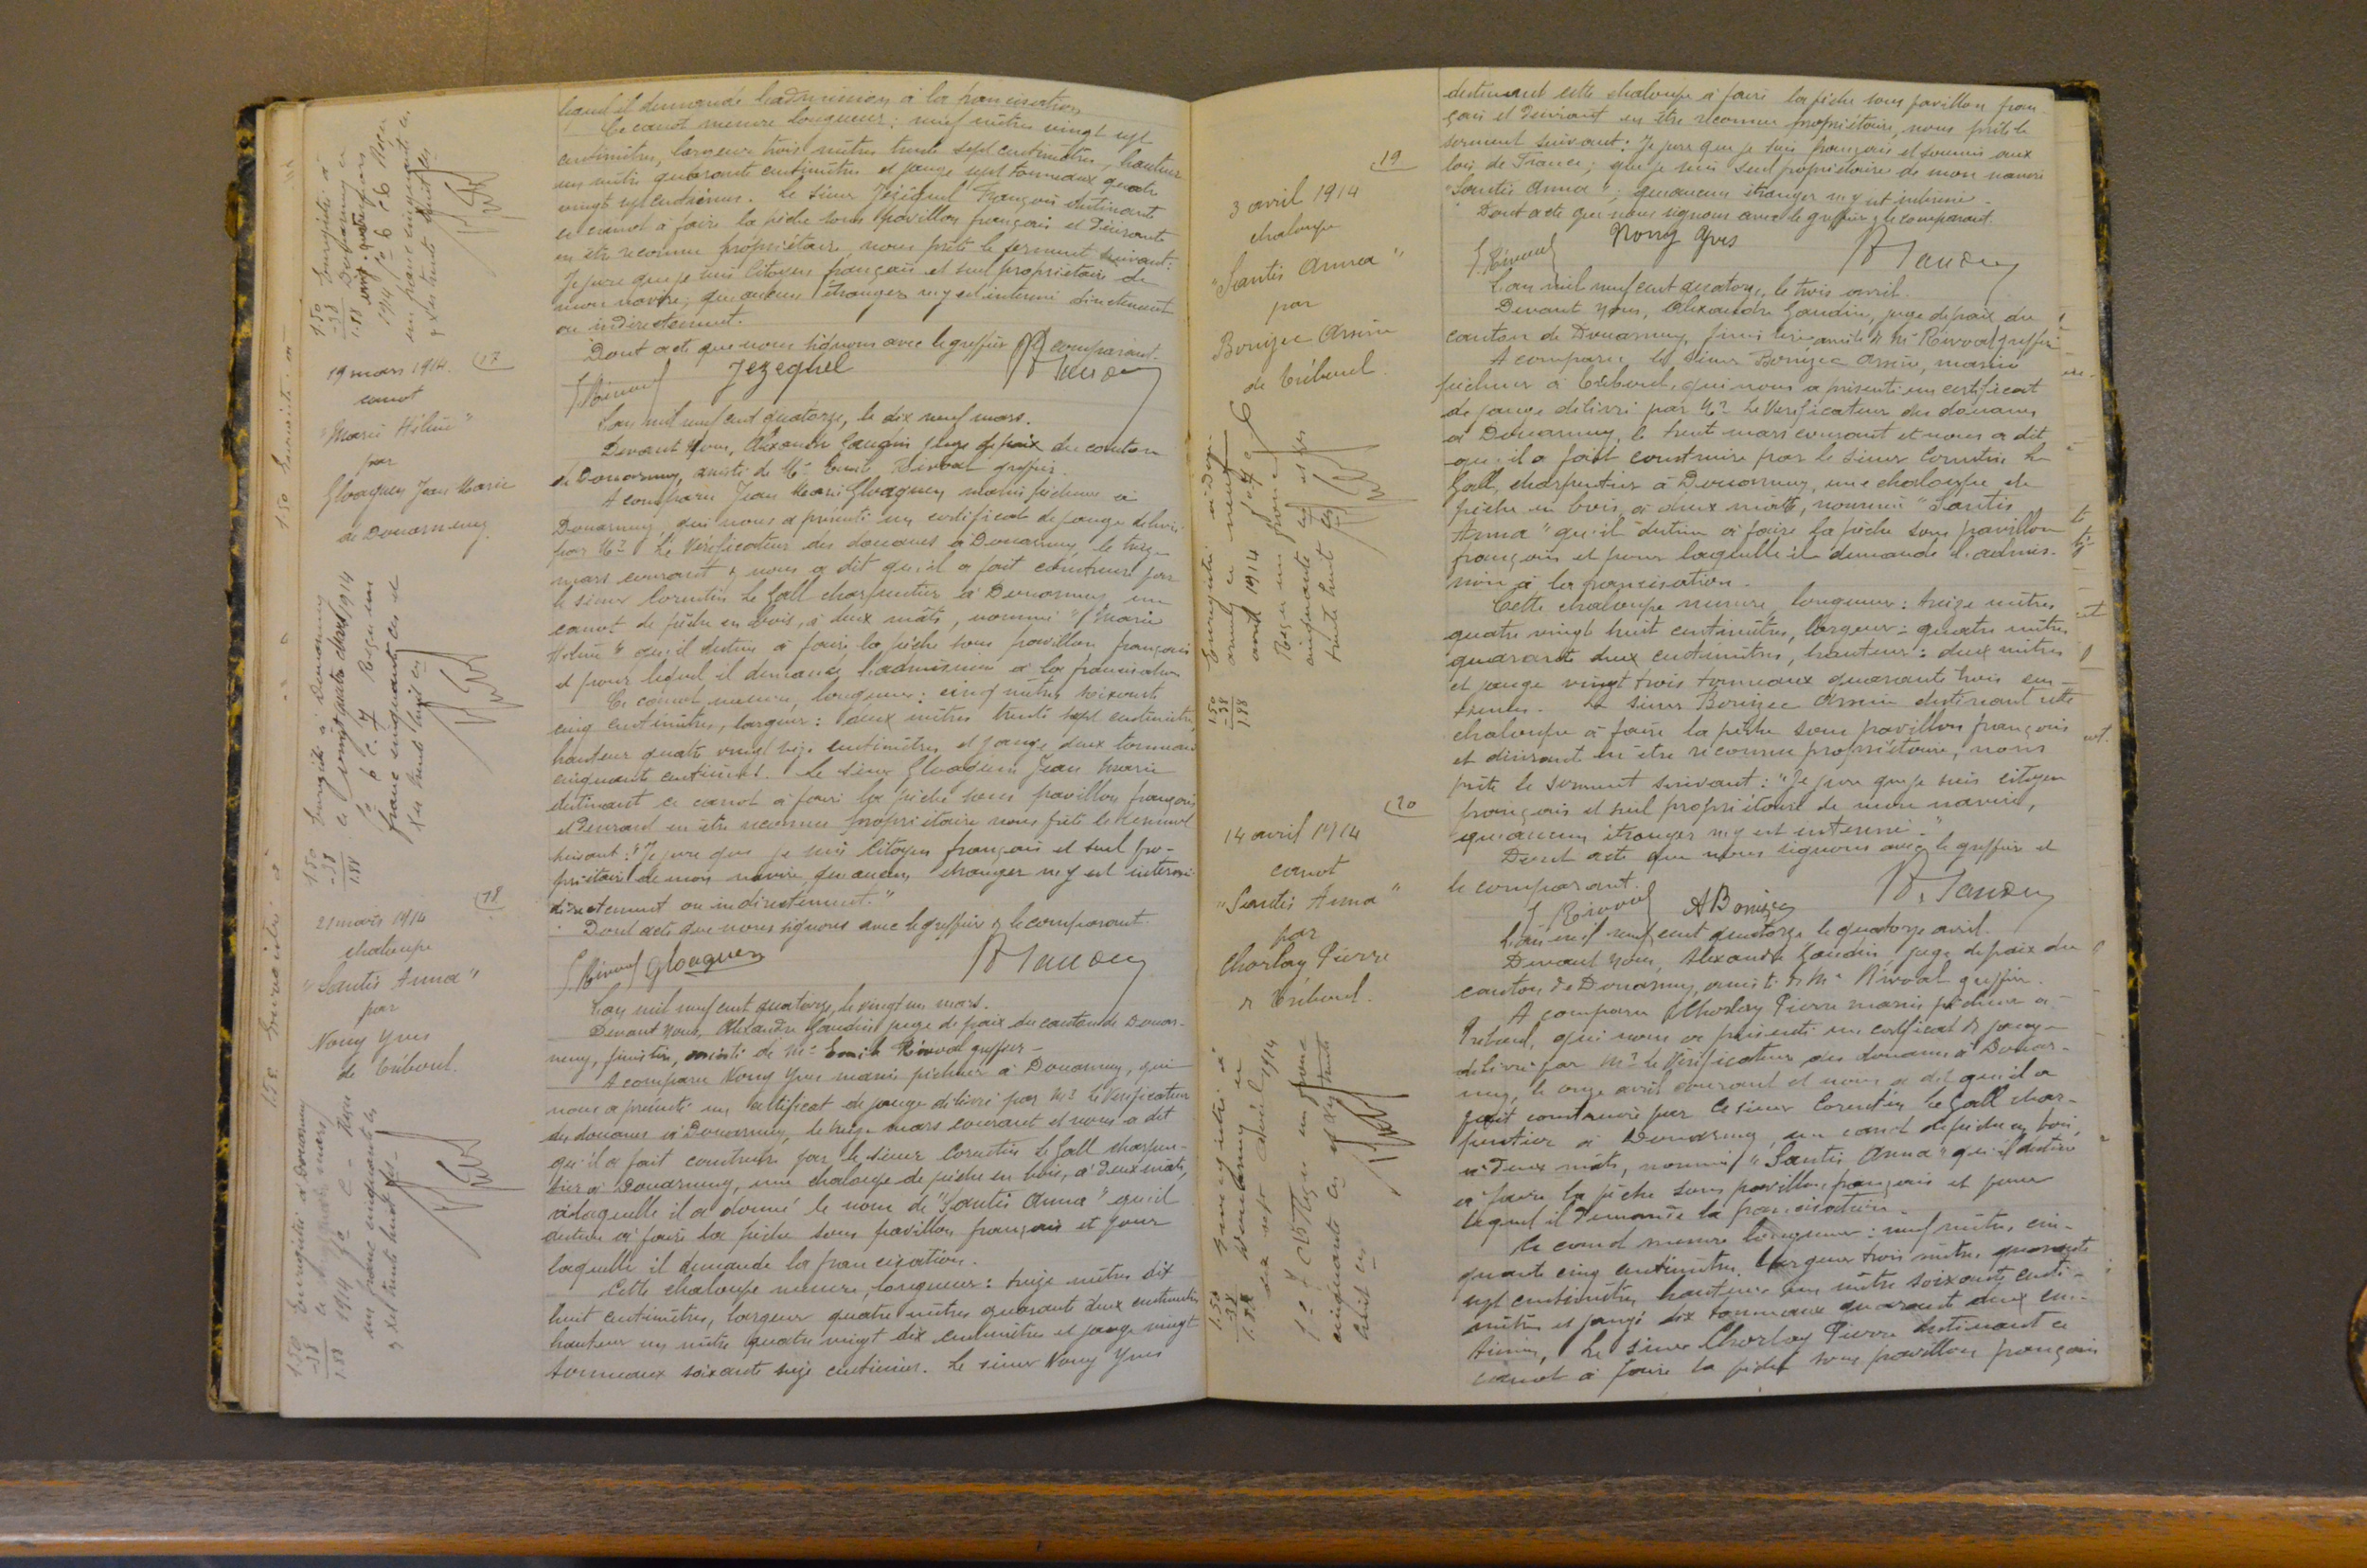 lequel il demande l'admission à la francisation
Ce canot mesure longueur : neuf mètres vingt sept
centimètres, largeur trois mètres trente sept centimètres, hauteur
un mètre quarante centimètres et jauge sept tonneaux quatre
vingt sept centièmes. Le sieur Jézéquel François destinant
ce canot à faire la pêche sous pavillon français et désirant
en être reconnu propriétaire, nous prête le serment suivant :
Je jure que je suis citoyen français et seul propriétaire de
mon navire, qu'aucun étranger n'y est intéressé directement
ou indirectement.
Dont acte que nous signons avec le greffier & le comparant.
Jezequel
19 mars 1914. 17
canot
"Marie Hélène"
par
Gloaguen Jean Marie
de Douarnenez
L'an mil neuf cent quatorze, le dix neuf mars.
Devant nous, Alexandre Gaudin juge de paix du canton
de Douarnenez, assisté de Me Emile Rivoal greffier.
A comparu Jean Marie Gloaguen marin pêcheur à
Douarnenez qui nous a présenté un certificat de jauge délivré
par Mr Le Vérificateur des douanes à Douarnenez le treize
mars courant & nous a dit qu'il a fait construire par
le sieur Corentin Le Gall charpentier à Douarnenez un
canot de pêche en bois, à deux mâts, nommé "Marie
Hélène" qu'il destine à faire la pêche sous pavillon français
et pour lequel il demande l'admission à la francisation
Ce canot mesure, longueur : cinq mètres soixante
cinq centimètres, largeur : deux mètres trente sept centimètres,
hauteur quatre vingt seize centimètres et jauge deux tonneaux
cinquante centièmes. Le sieur Gloaguen Jean Marie
destinant ce canot à faire la pêche sous pavillon français
et désirant en être reconnu propriétaire nous prête le serment
suivant : "Je jure que je suis citoyen français et seul pro-
priétaire de mon navire qu'aucun étranger n'y est intéressé
directement ou indirectement."
Dont acte que nous signons avec le greffier & le comparant.
Rivoal Gloaguen
Enregistré à Douarnenez
ce vingt quatre mars 1914
fo 6 c. 7 Reçu un
franc cinquante ces et
dxes trente huit ces
1.50
-38
1.88
21 mars 1914 18
chaloupe
"Santès Anna"
par
Nouy Yves
de Tréboul.
L'an mil neuf cent quatorze, le vingt un mars.
Devant nous, Alexandre Gaudin juge de paix du canton de Douar-
nenez, finistère, assisté de Me Emile Rivoal greffier -
A comparu Nouy Yves marin pêcheur à Douarnenez, qui
nous a présenté un certificat de jauge délivré par Mr Le Vérificateur
des douanes à Douarnenez, le treize mars courant et nous a dit
qu'il a fait construire par le sieur Corentin Le Gall charpen-
tier à Douarnenez, une chaloupe de pêche en bois, à deux mâts,
à laquelle il a donné le nom de "Santès Anna" qu'il
destine à faire la pêche sous pavillon français et pour
laquelle il demande la francisation.
Cette chaloupe mesure, longueur : treize mètres dix
huit centimètres, largeur quatre mètres quarante deux centimètres
hauteur un mètre quatre vingt dix centimètres et jauge vingt
tonneaux soixante seize centièmes. Le sieur Nouy Yves
1.50
-38
1.88
destinant cette chaloupe à faire la pêche sous pavillon fran-
çais et désirant en être reconnu propriétaire, nous prête le
serment suivant : Je jure que je suis français et soumis aux
lois de France ; que je suis seul propriétaire de mon navire
"Santès Anna", qu'aucun étranger n'y est intéressé -
Dont acte que nous signons avec le greffier & le comparant.
Rivoal Nouy Yves
19
3 avril 1914
chaloupe
"Santès Anna"
par
Bonizec
de Tréboul.
L'an mil neuf cent quatorze, le trois avril.
Devant nous, Alexandre Gaudin, juge de paix du
canton de Douarnenez, finistère assisté de Me Rivoal greffier
A comparu, le sieur Bonizec, marin
pêcheur à Tréboul, qui nous a présenté un certificat
de jauge délivré par Mr Le Vérificateur des douanes
à Douarnenez, le trente mars courant et nous a dit
qu'il a fait construire par le sieur Corentin Le
Gall, charpentier à Douarnenez, une chaloupe de
pêche en bois, à deux mâts, nommée "Santès
Anna" qu'il destine à faire la pêche sous pavillon
français et pour laquelle il demande l'admis-
sion à la francisation.
Cette chaloupe mesure, longueur : treize mètres
quatre vingt huit centimètres, largeur : quatre mètres
quarante deux centimètres, hauteur : deux mètres
et jauge vingt trois tonneaux quarante trois cen-
tièmes. Le sieur Bonizec destinant cette
chaloupe à faire la pêche sous pavillon français
et désirant en être reconnu propriétaire, nous
prête le serment suivant : "Je jure que je suis citoyen
français et seul propriétaire de mon navire,
qu'aucun étranger n'y est intéressé."
Dont acte que nous signons avec le greffier et
le comparant.
Rivoal ABonizec
1.50
-38
1.88
20
14 avril 1914
canot
"Santès Anna"
par
Charlay Pierre
de Tréboul.
L'an mil neuf cent quatorze le quatorze avril.
Devant nous, Alexandre Gaudin, juge de paix du
canton de Douarnenez, assisté de Me Rivoal greffier.
A comparu Charlay Pierre marin pêcheur à
Tréboul, qui nous a présenté un certificat de jauge
délivré par Mr le Vérificateur des douanes à Douar-
nenez, le onze avril courant et nous a dit qu'il a
fait construire par le sieur Corentin Le Gall char-
pentier à Douarnenez, un canot de pêche en bois,
à deux mâts, nommé "Santès Anna" qu'il destine
à faire la pêche sous pavillon français et pour
lequel il demande la francisation.
Ce canot mesure longueur : neuf mètres, cin-
quante cinq centimètres, largeur trois mètres quarante
sept centimètres, hauteur un mètre soixante centi-
mètres et jauge dix tonneaux quarante deux cen-
tièmes, Le sieur Charlay Pierre destinant ce
canot à faire la pêche sous pavillon français
1.50
-38
1.88